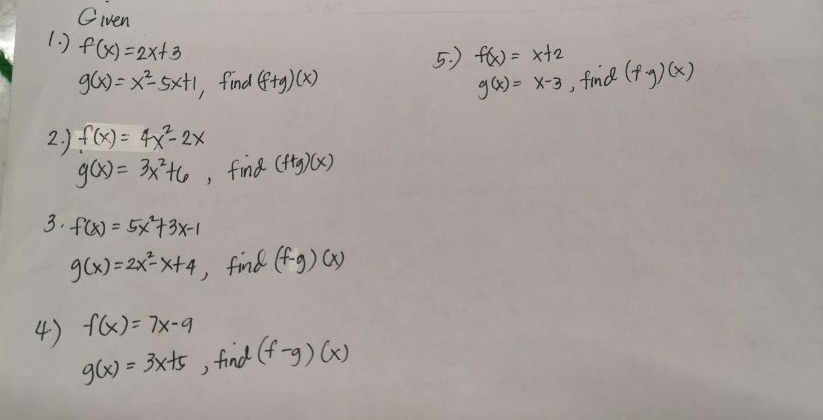 Given
1.) f(x) = 2x+3
g(x) = x²-5x+1, find (f+g)(x)
2.) f(x) = 4x²-2x
g(x) = 3x²+6, find (f+g)(x)
3. f(x) = 5x²+3x-1
g(x) = 2x²-x+4, find (f-g)(x)
4) f(x) = 7x-9
g(x) = 3x+5, find (f-g)(x)
5.) f(x) = x+2
g(x) = x-3, find (f·g)(x)